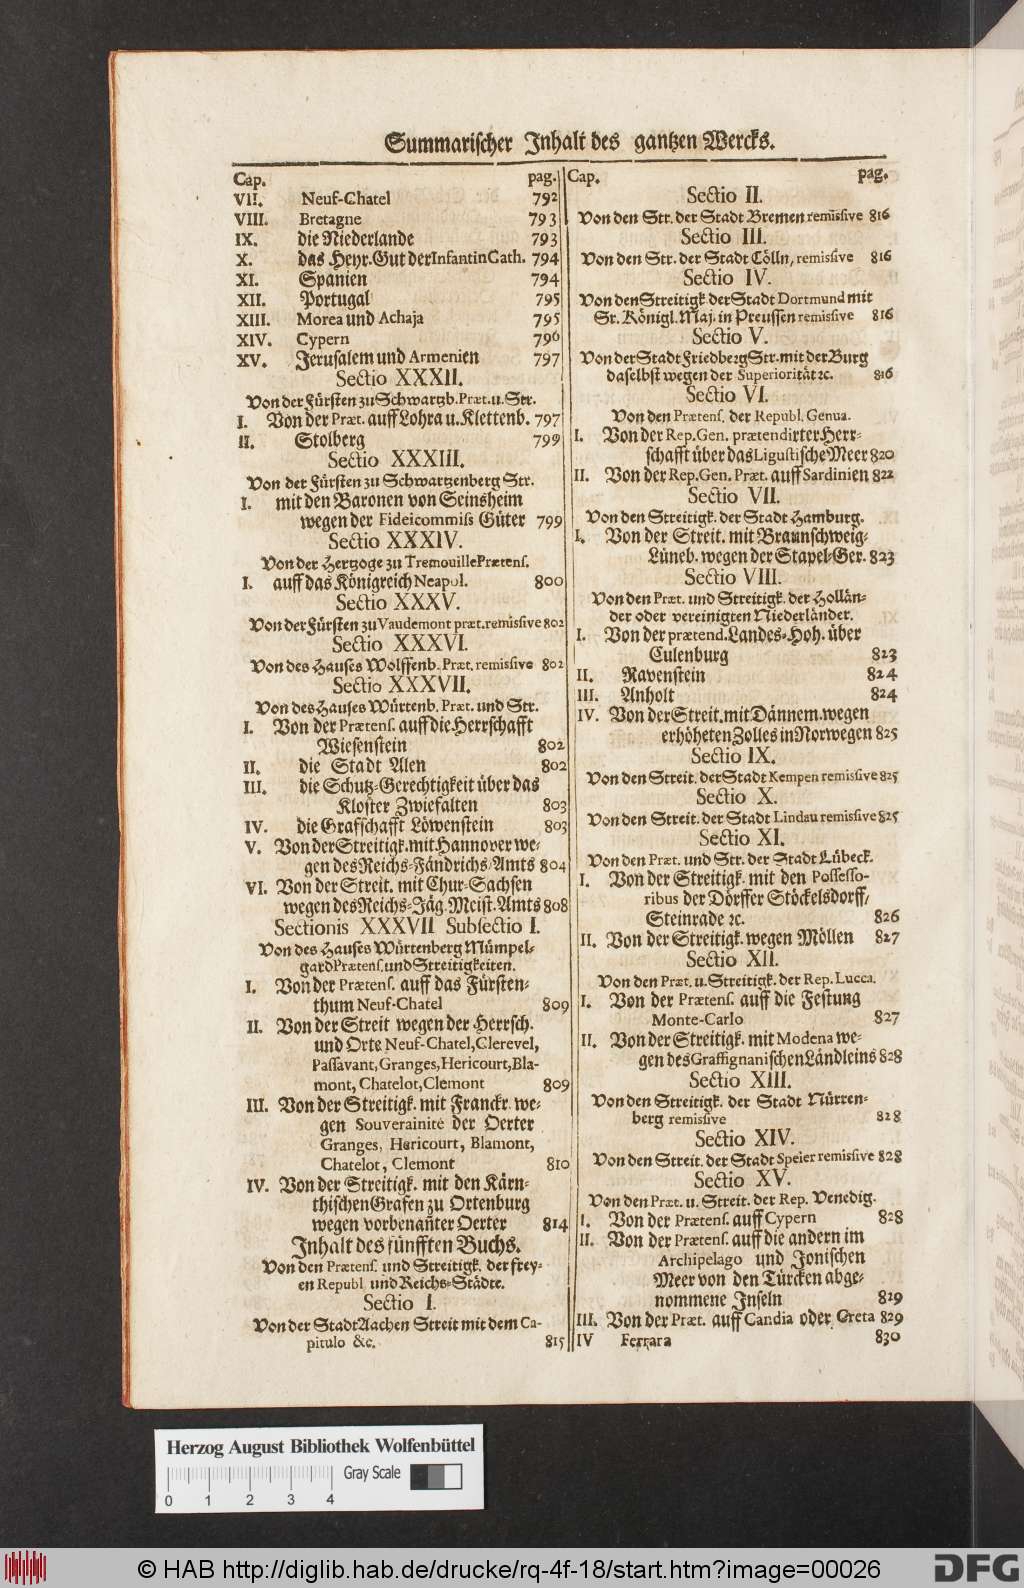 Summarischer Inhalt des gantzen Wercks.
Cap. pag.
VII. Neuf-Chatel 792
VIII. Bretagne 793
IX. die Niederlande 793
X. das Heyr. Gut der Infantin Cath. 794
XI. Spanien 794
XII. Portugal 795
XIII. Morea und Achaja 795
XIV. Cypern 796
XV. Jerusalem und Armenien 797
Sectio XXXII.
Von der Fürsten zu Schwartzb. Præt. u. Str.
I. Von der Præt. auff Lohra u. Klettenb. 797
II. Stolberg 799
Sectio XXXIII.
Von der Fürsten zu Schwartzenberg Str.
I. mit den Baronen von Seinsheim
wegen der Fideicommiss Güter 799
Sectio XXXIV.
Von der Hertzoge zu Tremouille Prætens.
I. auff das Königreich Neapol. 800
Sectio XXXV.
Von der Fürsten zu Vaudemont præt. remissive 802
Sectio XXXVI.
Von des Hauses Wolffenb. Præt. remissive 802
Sectio XXXVII.
Von des Hauses Würtenb. Præt. und Str.
I. Von der Prætens. auff die Herrschafft
Wiesenstein 802
II. die Stadt Alen 802
III. die Schutz-Gerechtigkeit über das
Kloster Zwiefalten 803
IV. die Grafschafft Löwenstein 803
V. Von der Streitigk. mit Hannover we-
gen des Reichs-Fändrichs-Amts 804
VI. Von der Streit. mit Chur-Sachsen
wegen des Reichs-Jäg. Meist. Amts 808
Sectionis XXXVII Subsectio I.
Von des Hauses Würtenberg Mümpel-
gard Prætens. und Streitigkeiten.
I. Von der Prætens. auff das Fürsten-
thum Neuf-Chatel 809
II. Von der Streit wegen der Herrsch.
und Orte Neuf-Chatel, Clerevel,
Passavant, Granges, Hericourt, Bla-
mont, Chatelot, Clemont 809
III. Von der Streitigk. mit Franckr. we-
gen Souverainité der Oerter
Granges, Hericourt, Blamont,
Chatelot, Clemont 810
IV. Von der Streitigk. mit den Kärn-
thischen Grafen zu Ortenburg
wegen vorbenañter Oerter 814
Inhalt des fünfften Buchs.
Von den Prætens. und Streitigk. der frey-
en Republ. und Reichs-Städte.
Sectio I.
Von der Stadt Aachen Streit mit dem Ca-
pitulo &c. 815
Cap. pag.
Sectio II.
Von den Str. der Stadt Bremen remissive 816
Sectio III.
Von den Str. der Stadt Cölln, remissive 816
Sectio IV.
Von den Streitigk. der Stadt Dortmund mit
Sr. Königl. Maj. in Preussen remissive 816
Sectio V.
Von der Stadt Friedberg Str. mit der Burg
daselbst wegen der Superiorität ꝛc. 816
Sectio VI.
Von den Prætens. der Republ. Genua.
I. Von der Rep. Gen. prætendirter Herr-
schafft über das Ligustische Meer 820
II. Von der Rep. Gen. Præt. auff Sardinien 822
Sectio VII.
Von den Streitigk. der Stadt Hamburg.
I. Von der Streit. mit Braunschweig-
Lüneb. wegen der Stapel-Ger. 823
Sectio VIII.
Von den Præt. und Streitigk. der Hollän-
der oder vereinigten Niederländer.
I. Von der prætend. Landes-Hoh. über
Culenburg 823
II. Ravenstein 824
III. Anholt 824
IV. Von der Streit. mit Dännem. wegen
erhöheten Zolles in Norwegen 825
Sectio IX.
Von den Streit. der Stadt Kempen remissive 825
Sectio X.
Von den Streit. der Stadt Lindau remissive 825
Sectio XI.
Von den Præt. und Str. der Stadt Lübeck.
I. Von der Streitigk. mit den Possesso-
ribus der Dörffer Stöckelsdorff/
Steinrade ꝛc. 826
II. Von der Streitigk. wegen Möllen 827
Sectio XII.
Von den Præt. u. Streitigk. der Rep. Lucca.
I. Von der Prætens. auff die Festung
Monte-Carlo 827
II. Von der Streitigk. mit Modena we-
gen des Graffignanischen Ländleins 828
Sectio XIII.
Von den Streitigk. der Stadt Nürren-
berg remissive 828
Sectio XIV.
Von den Streit. der Stadt Speier remissive 828
Sectio XV.
Von den Præt. u. Streit. der Rep. Venedig.
I. Von der Prætens. auff Cypern 828
II. Von der Prætens. auff die andern im
Archipelago und Jonischen
Meer von den Türcken abge-
nommene Inseln 829
III. Von der Præt. auff Candia oder Creta 829
IV Ferrara 830
Herzog August Bibliothek Wolfenbüttel
Gray Scale
0 1 2 3 4
© HAB http://diglib.hab.de/drucke/rq-4f-18/start.htm?image=00026
DFG